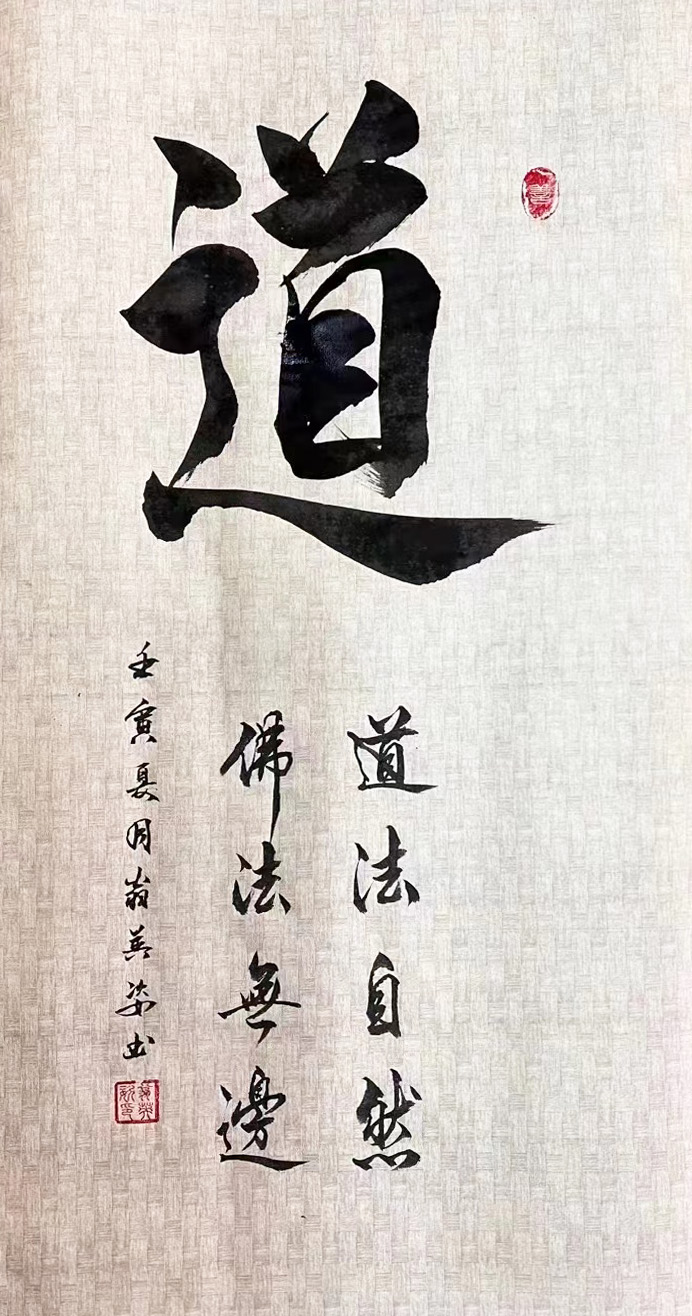 道
道法自然
佛法無邊
壬寅夏月翁英姿书